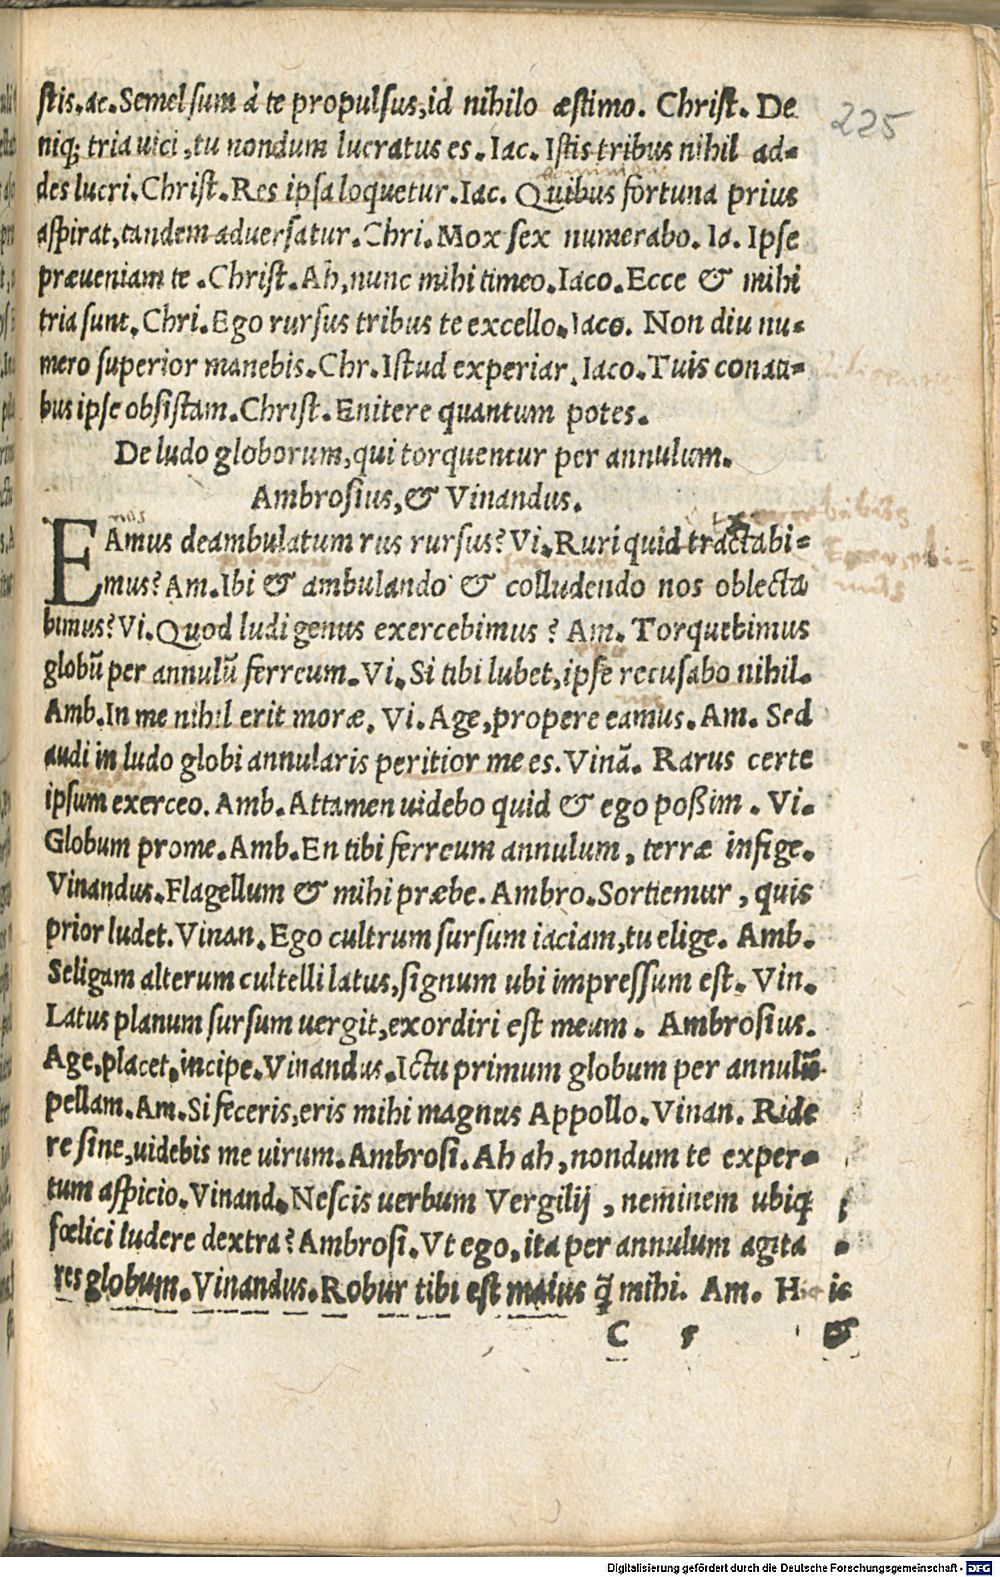 stis.ac. Semel sum à te propulsus, id nihilo æstimo. Christ. De
225
niq; tria uici, tu nondum lucratus es. Iac. Istis tribus nihil ad-
des lucri. Christ. Res ipsa loquetur. Iac. Quibus fortuna prius
aspirat, tandem adversatur. Chri. Mox sex numerabo. Ia. Ipse
præveniam te. Christ. Ah, nunc mihi timeo. Iaco. Ecce & mihi
tria sunt. Chri. Ego rursus tribus te excello. Iaco. Non diu nu-
mero superior manebis. Chr. Istud experiar. Iaco. Tuis conati-
bus ipse obsistam. Christ. Enitere quantum potes.
De ludo globorum, qui torquentur per annulum.
Ambrosius, & Vinandus.
EAmus deambulatum rus rursus? Vi. Ruri quid tractabi-
mus? Am. Ibi & ambulando & colludendo nos oblecta
bimus? Vi. Quod ludi genus exercebimus? Am. Torquebimus
globū per annulū ferreum. Vi. Si tibi lubet, ipse recusabo nihil.
Amb. In me nihil erit moræ. Vi. Age, propere eamus. Am. Sed
audi in ludo globi annularis peritior me es. Vinā. Rarus certe
ipsum exerceo. Amb. Attamen uidebo quid & ego poßim. Vi.
Globum prome. Amb. En tibi ferreum annulum, terræ infige.
Vinandus. Flagellum & mihi præbe. Ambro. Sortiemur, quis
prior ludet. Vinan. Ego cultrum sursum iaciam, tu elige. Amb.
Seligam alterum cultelli latus, signum ubi impressum est. Vin.
Latus planum sursum uergit, exordiri est meum. Ambrosius.
Age, placet, incipe. Vinandus. Ictu primum globum per annulū
pellam. Am. Si feceris, eris mihi magnus Appollo. Vinan. Ride
re sine, uidebis me uirum. Ambrosi. Ah ah, nondum te exper-
tum aspicio. Vinand. Nescis uerbum Vergilij, neminem ubiq;
fœlici ludere dextra? Ambrosi. Vt ego, ita per annulum agita
res globum. Vinandus. Robur tibi est maius q̄ mihi. Am. His
C 5 &
Digitalisierung gefördert durch die Deutsche Forschungsgemeinschaft - DFG